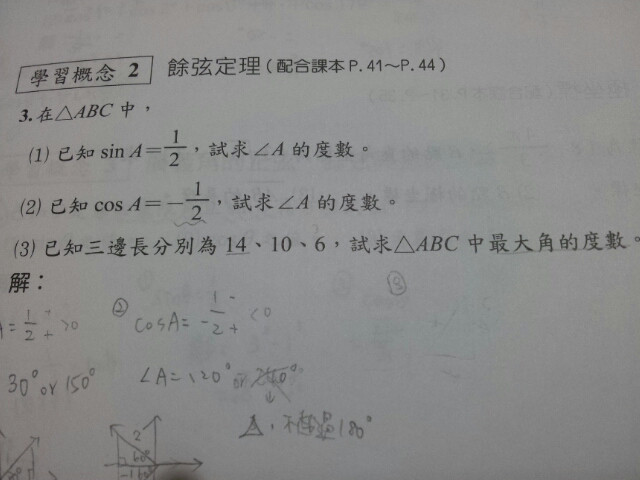 學習概念 2 餘弦定理(配合課本P.41~P.44)
3.在△ABC中,
(1) 已知 sin A=1/2,試求∠A的度數。
(2) 已知 cos A=-1/2,試求∠A的度數。
(3) 已知三邊長分別為14、10、6,試求△ABC中最大角的度數。
解:
A=1/2 >0
② cosA=-1/2 <0
③
30° or 150°
∠A=120° or 240°
△,不超過180°
2
60°
-1